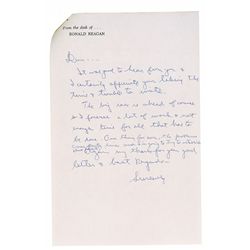 From the desk of
RONALD REAGAN
Dear ...
It was good to hear from you &
I certainly appreciate you taking the
time & trouble to write.
The big race is ahead of course
and I foresee a lot of work & not
enough time for all that has to
be done. One thing for sure, the problems
to try to
again my thanks for your good
letter & best Regards.
Sincerely